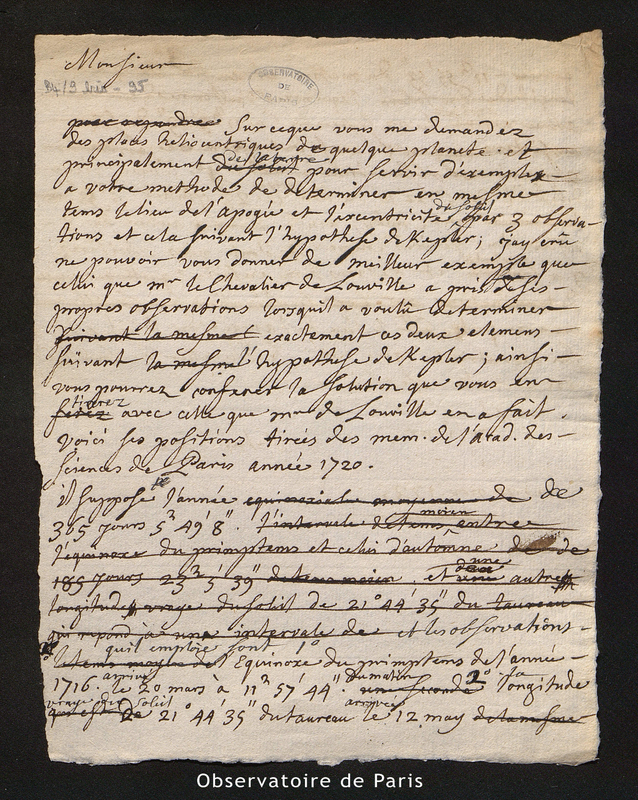 Monsieur
84/9 bis - 95
OBSERVATOIRE
DE
PARIS
pour repondre Sur ceque vous me demandez
des places heliocentriques de quelque planete et
principalement du soleil de la terre pour servir d'exemple
a votre methode de determiner en mesme
tems le lieu de l'apogée et l'excentricité du soleil par 3 observa-
tions et cela suivant l'hypothese de Kepler; j'ay crû
ne pouvoir vous donner de meilleur exemple que
celui que mr le Chevalier de Louville a pris de ses
propres observations lorsquil a voulû determiner
suivant la mesme exactement ces deux elemens
suivant la mesme l'hypothese de Kepler; ainsi
vous pourrez conferer la solution que vous en
ferez tirerez avec celle que mr de Louville en a fait.
voici ses positions tirées des mem. de l'acad. des
sciences de Paris année 1720.
il suppose l'année equinoxiale moyenne de de
365 jours 5h 49' 8". l'intervale de tems moien entre
l'equinoxe du primptems et celui d'automne de
185 jours 23h 5' 39" de tems moien. et une autre
longitude vraye du soleil de 21° 44' 35" du taureau
qui repond à une intervale de et les observations
quil emploie sont 1°
le tems moyen de l'Equinoxe du primptems de l'année
1716. arrivé le 20 mars à 11h 57' 44" du matin une seconde 2° la longitude
vraye du soleil
de 21° 44' 35" du taureau arrivée le 12 may de la mesme
Observatoire de Paris